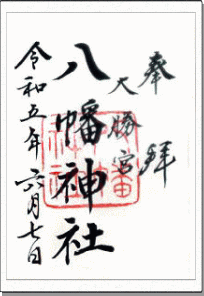 奉拝
大勝宮
八幡神社
令和五年六月七日